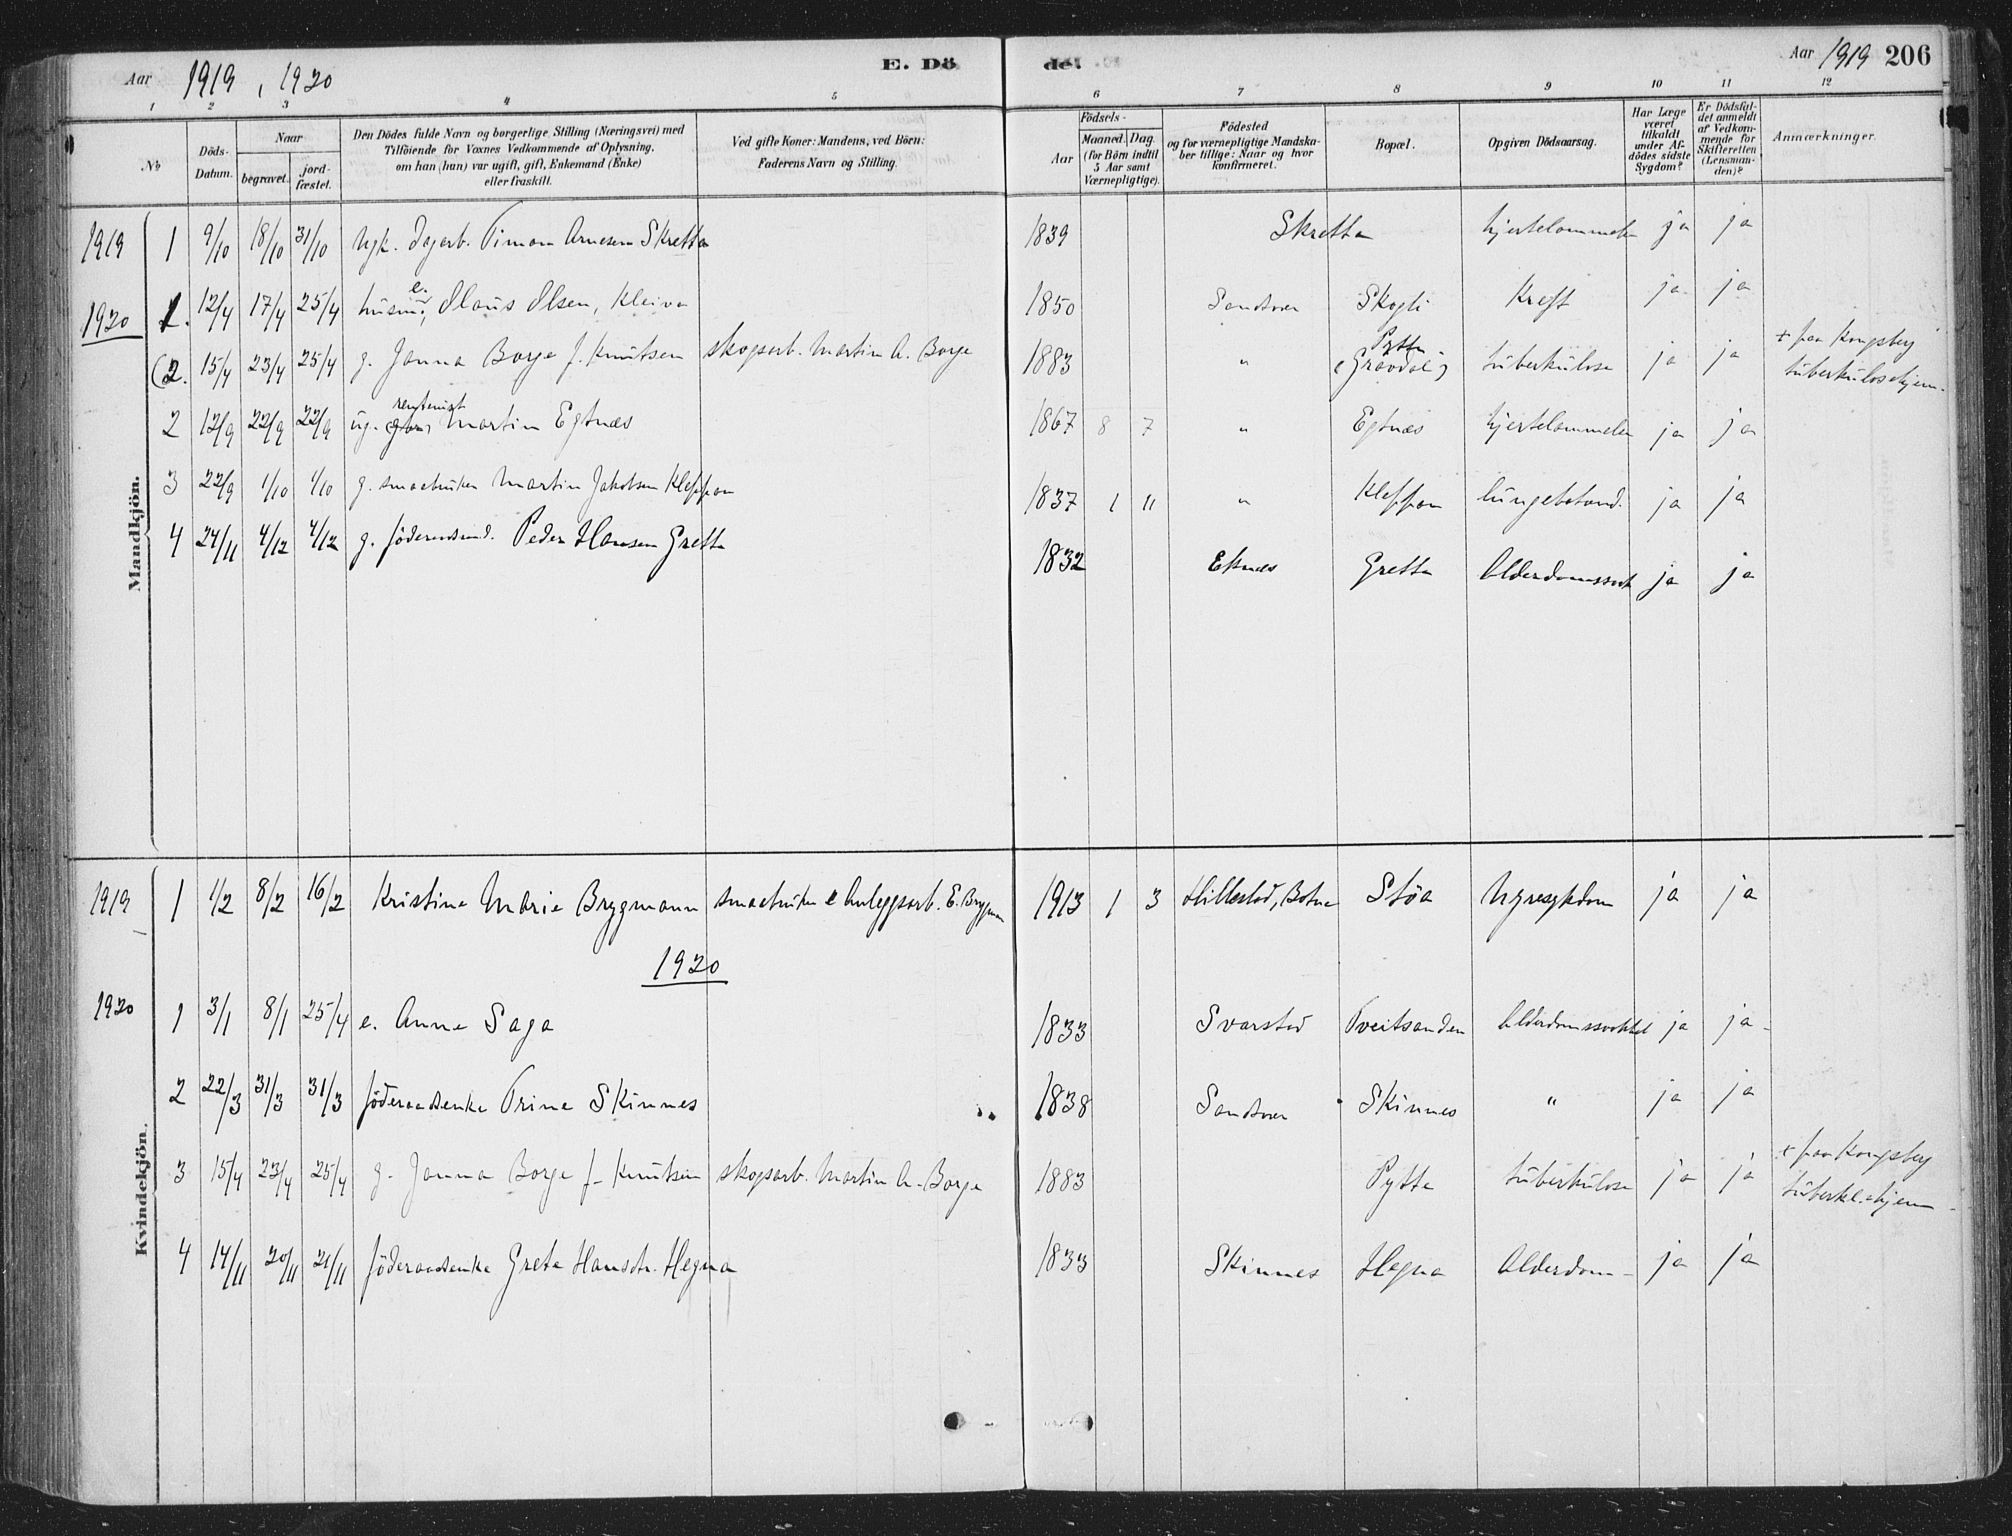 Aar 1919, 1920 E. Dö de. Aar 1919 206
1 2 3 4 5 6 7 8 9 10 11 12
No Döds-Datum. Naar begravet. jord-fæstet. Den Dödes fulde Navn og borgerlige Stilling (Næringsvei) med Tilföiende for Voxnes Vedkommende af Oplysning, om han (hun) var ugift, gift, Enkemand (Enke) eller fraskilt. Ved gifte Koner: Mandens, ved Börn: Faderens Navn og Stilling. Födsels- Aar Maaned. Dag. (for Börn indtil 5 Aar samt Værnepligtige). Födested og for værnepligtige Mandska-ber tillige: Naar og hvor konfirmeret. Bopæl. Opgiven Dödsaarsag. Har Læge været tilkaldt under Af-dödes sidste Sygdom? Er Dödsfal-det anmeldt af Vedkom-mende for Skifteretten (Lensman-den)? Anmærkninger.
Mandkjön.
1919 1 9/10 18/10 31/10 Arnesen Skretta 1839 Skretta hjertelammelse ja ja
1920 1. 12/4 17/4 25/4 husm., e. Olaus Olsen, Kleiva 1850 Sandsver Skogli Kreft ja ja
(2. 15/4 23/4 25/4 g. Janna Borge f. Knutsen skogsarb. Martin A. Borge 1883 " Pytta (Gravdal) tuberkulose ja ja + paa Kongsberg tuberkulosehjem.
2 12/9 22/9 22/9 ug. rentenist Martin Egtnæs 1867 8 7 " Egtnæs hjertelammelse ja ja
3 22/9 1/10 1/10 g. smaabruker Martin Jakobsen Kleppan 1837 1 11 " Kleppan lungebetænd. ja ja
4 24/11 4/12 4/12 g. föderaadsmd. Peder Hansen Gretta 1832 Gretta Alderdomssvak ja ja
Kvindekjön.
1919 1 1/2 8/2 16/2 Kristine Marie Brygmann smaabruker & Anlegsarb. E. Brygman 1913 1 3 Hillestad, Botne Stöa Nyresykdom ja ja
1920
1920 1 3/1 8/1 25/4 e. Anne Saga 1833 Svarstad Tveitsanden Alderdomssvakhet ja ja
2 22/3 31/3 31/3 föderaadsenke Trine Skinnes 1838 Sandsver Skinnes " ja ja
3 15/4 23/4 25/4 g. Janna Borge f. Knutsen skogsarb. Martin A. Borge 1883 Pytta tuberkulose ja ja + paa Kongsberg tuberkl.hjem.
4 14/11 20/11 21/11 föderaadsenke Grete Hansdtr. Hegna 1833 Skinnes Hegna Alderdom ja ja